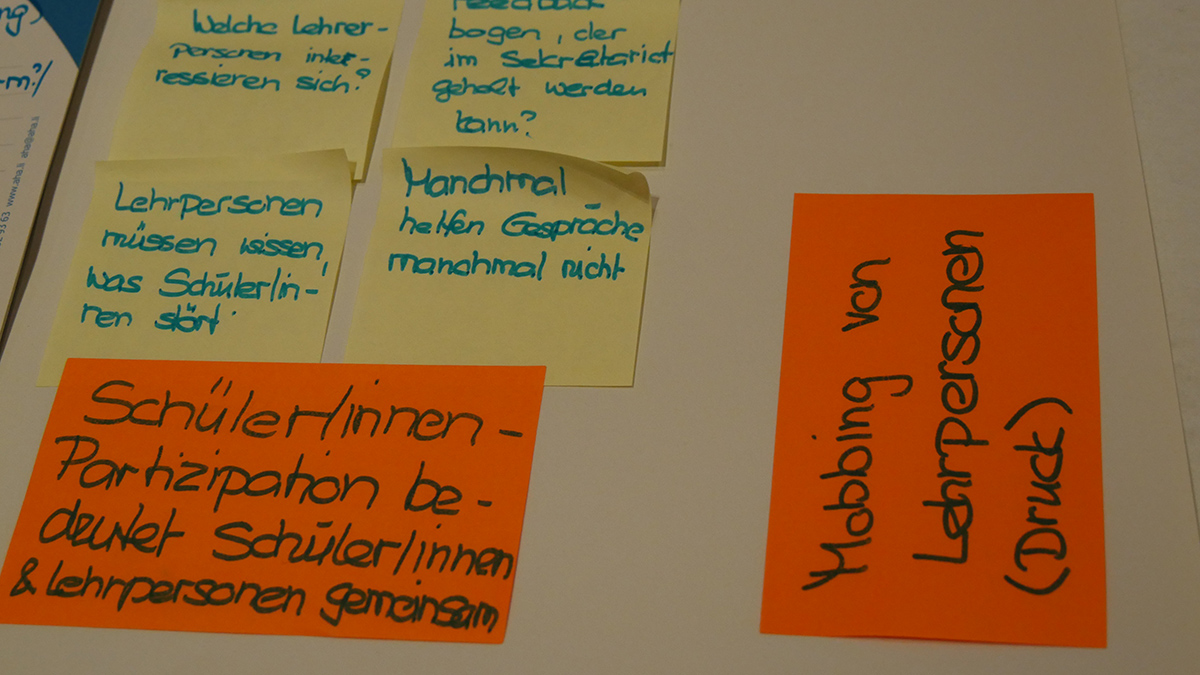 ng,
-m?/
www.aha.li aha@aha.li
Welche Lehrer-
personen inter-
ressieren sich?
Feedback
bogen, der
im Sekretariat
geholt werden
kann?
Lehrpersonen
müssen wissen,
was Schüler/in-
nen stört
Manchmal
helfen Gespräche
manchmal nicht
Schüler/innen-
Partizipation be-
deutet Schüler/innen
& Lehrpersonen gemeinsam
Mobbing von
Lehrpersonen
(Druck)